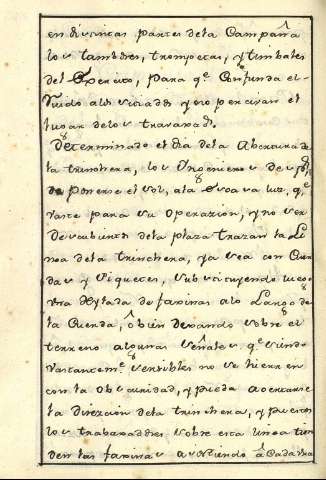 en distintas partes dela Campaña
los tambores, trompetas, y timbales
del Exercito, para qe Confunda el
ruido alos sitiados y no percivan el
lugar delos travajads.
Determinado el dia dela Abertura de
la trinchera, los Yngenieros despues
de ponerse el sol, ala escasa luz, qe
vaste para su operazion, y no ser
descubiertos dela plaza trazan la Li
nea dela trinchera, ya sea con Cuer
das y Piquetes, substituyendo luego
una Hylada de faxinas alo Largo de
la Cuerda, ò bien dexando sobre el
terreno algunas señales qe siendo
vastantemte sensibles no se hierren
con la obscuridad, y pueda acertarse
la direccion dela trinchera, y puestos
los travajadores sobre esta linea tien
den las faxinas asistiendo à Cada una